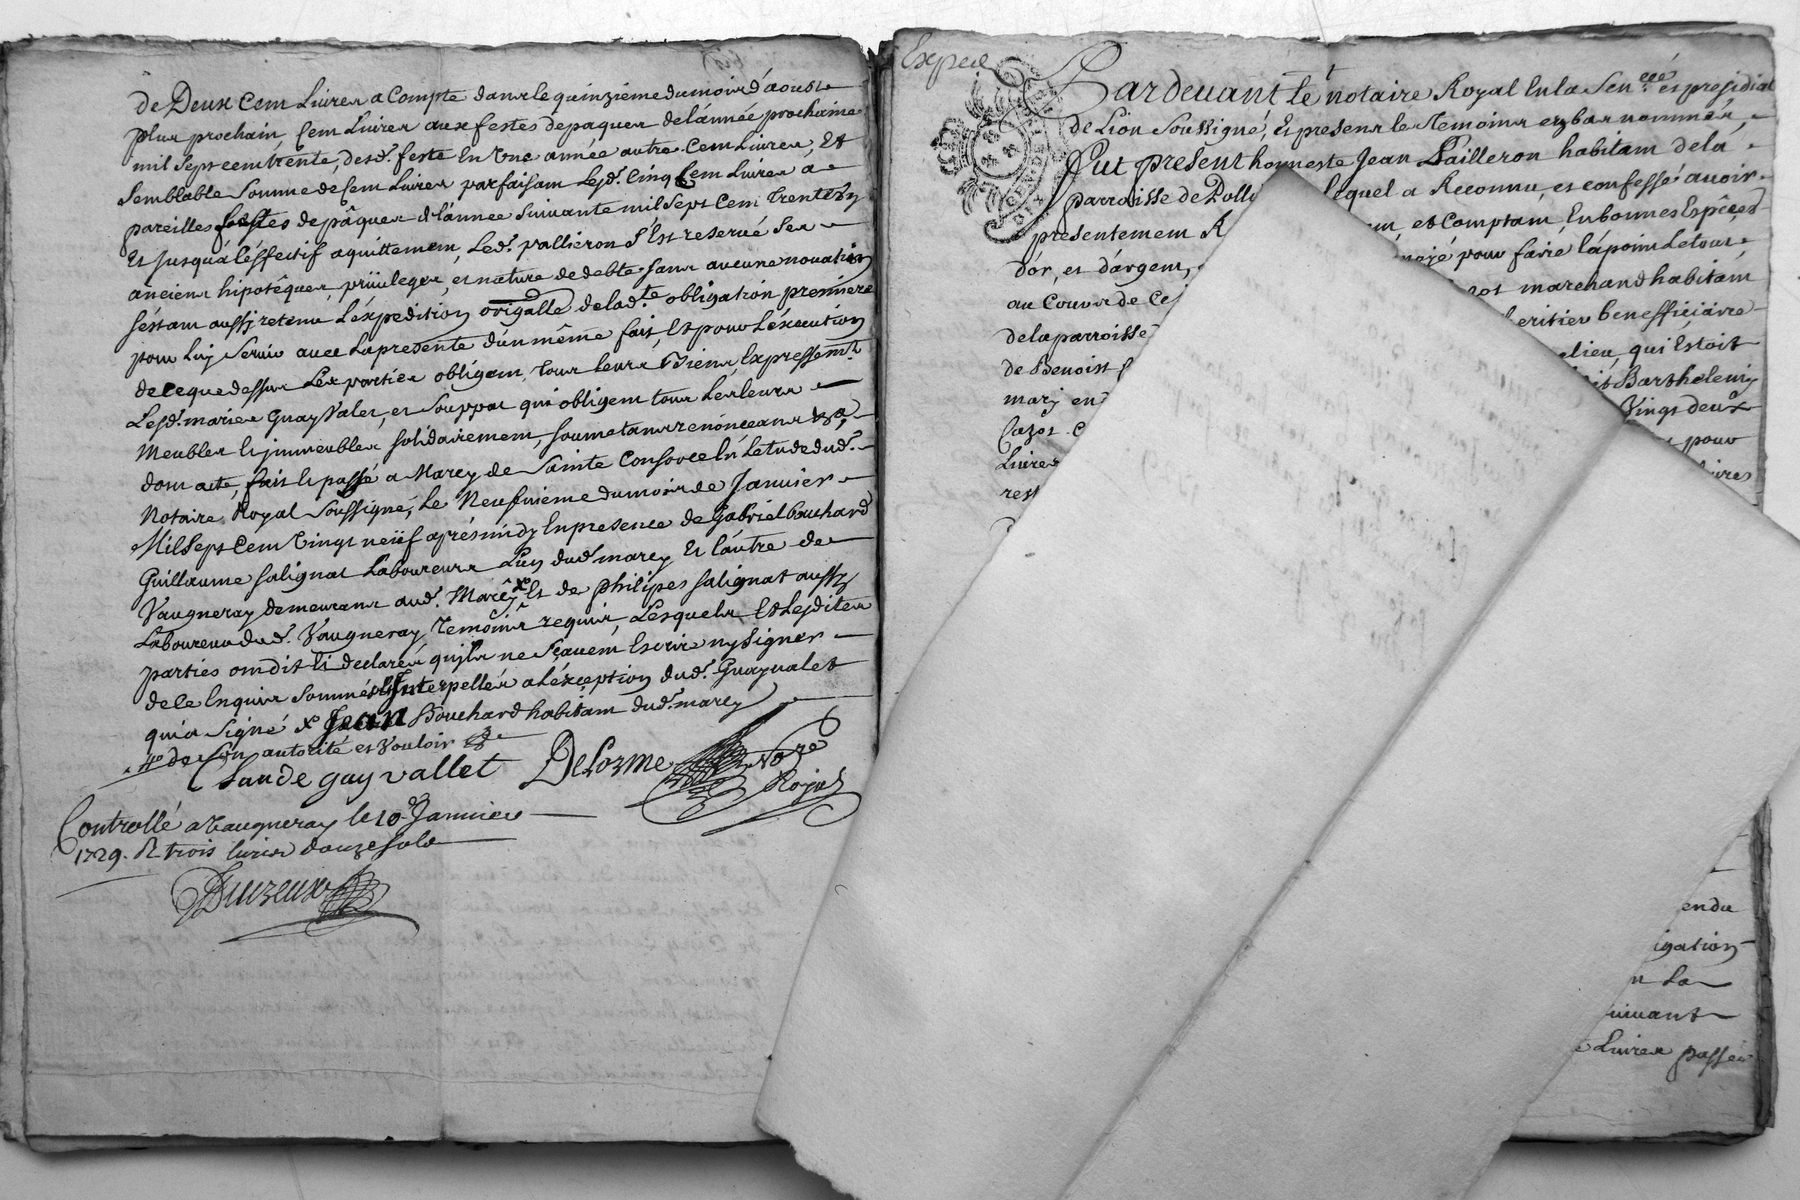 de Deux Cem Livres a Compte dans le quinzieme du mois d'aoust
plus prochain, Cem Livres aux festes de paques de l'année prochaine
mil sept cem trente, desd. feste En Une année autre Cem Livres, Et
Semblable Somme de Cem Livres parfaisam Lesd. Cinq Cem Livres a
pareilles festes de pâques de l'annee Suivante mil Sept Cem Trente Un
Et jusqu'à l'éffectif aquittemem, Led. pallieron S'Est reservé Ses
anciens hipotêques, privileges, et nature de debte sans aucune novation
s'éstam aussy retenu L'éxpedition origalle de lad.te obligation premiére
pour Luy Servir avec La presente d'un même fait, Et pour L'éxecution
de ce que dessus Les parties obligem, tous Leurs Biens Expressem.t
Lesd. mariés Guay Valet, et Souppat qui obligem tous Les leurs
Meubles et immeubles solidairemem, soumetans renonceans &a,
dom acte, fait et passé a Marcy de Sainte Consorce En L'etude dud.
Notaire Royal Soussigné, Le Neufvieme du mois de Janvier
Mil Sept Cem Vingt neüf aprés midy En presence de Gabriel bouchard
Guillaume salignat Laboureurs L'un dud. marcy Et l'autre de
Vaugneray demeurans aud. Marcy, x.e Et de philipes salignat aussy
Laboureur dud. Vaugneray Temoins requis, Lesquels Et Lesdites
parties om dit Et declaré qu'ils ne Sçavem Escrire ny Signer
de ce Enquis Sommés Et Interpellés a L'éxception dud. Guay valet
qui a Signé x.e Jean Bouchard habitam dud. marcy
de Son autorité et Vouloir
Claude gay vallet Delorme No.re
Royal
Controllé a Vaugneray le 10.e Janvier
1729. R. trois livres douze sols
Duzeux
Exped
Pardevant le notaire Royal En la Sen.ceé et presidial
de Lion Soussigné, Et presens les Temoins en bas nommés,
Fut present honneste Jean Pailleron habitam de la
parroisse de Polli lequel a Reconnu, et confessé avoir
presentemem R em, et Comptam, En bonnes Espêces
d'or, et d'argem, pour faire l'apoim Le tout
au Cours de Ce marchand habitam
de la parroisse heritier benefficiaire
de Benoist qui Estoit
mary en Barthelemy
Cazot Vingt deux
Livres pour
rest ivres
endu
igation
n La
suivant
e Livres passée